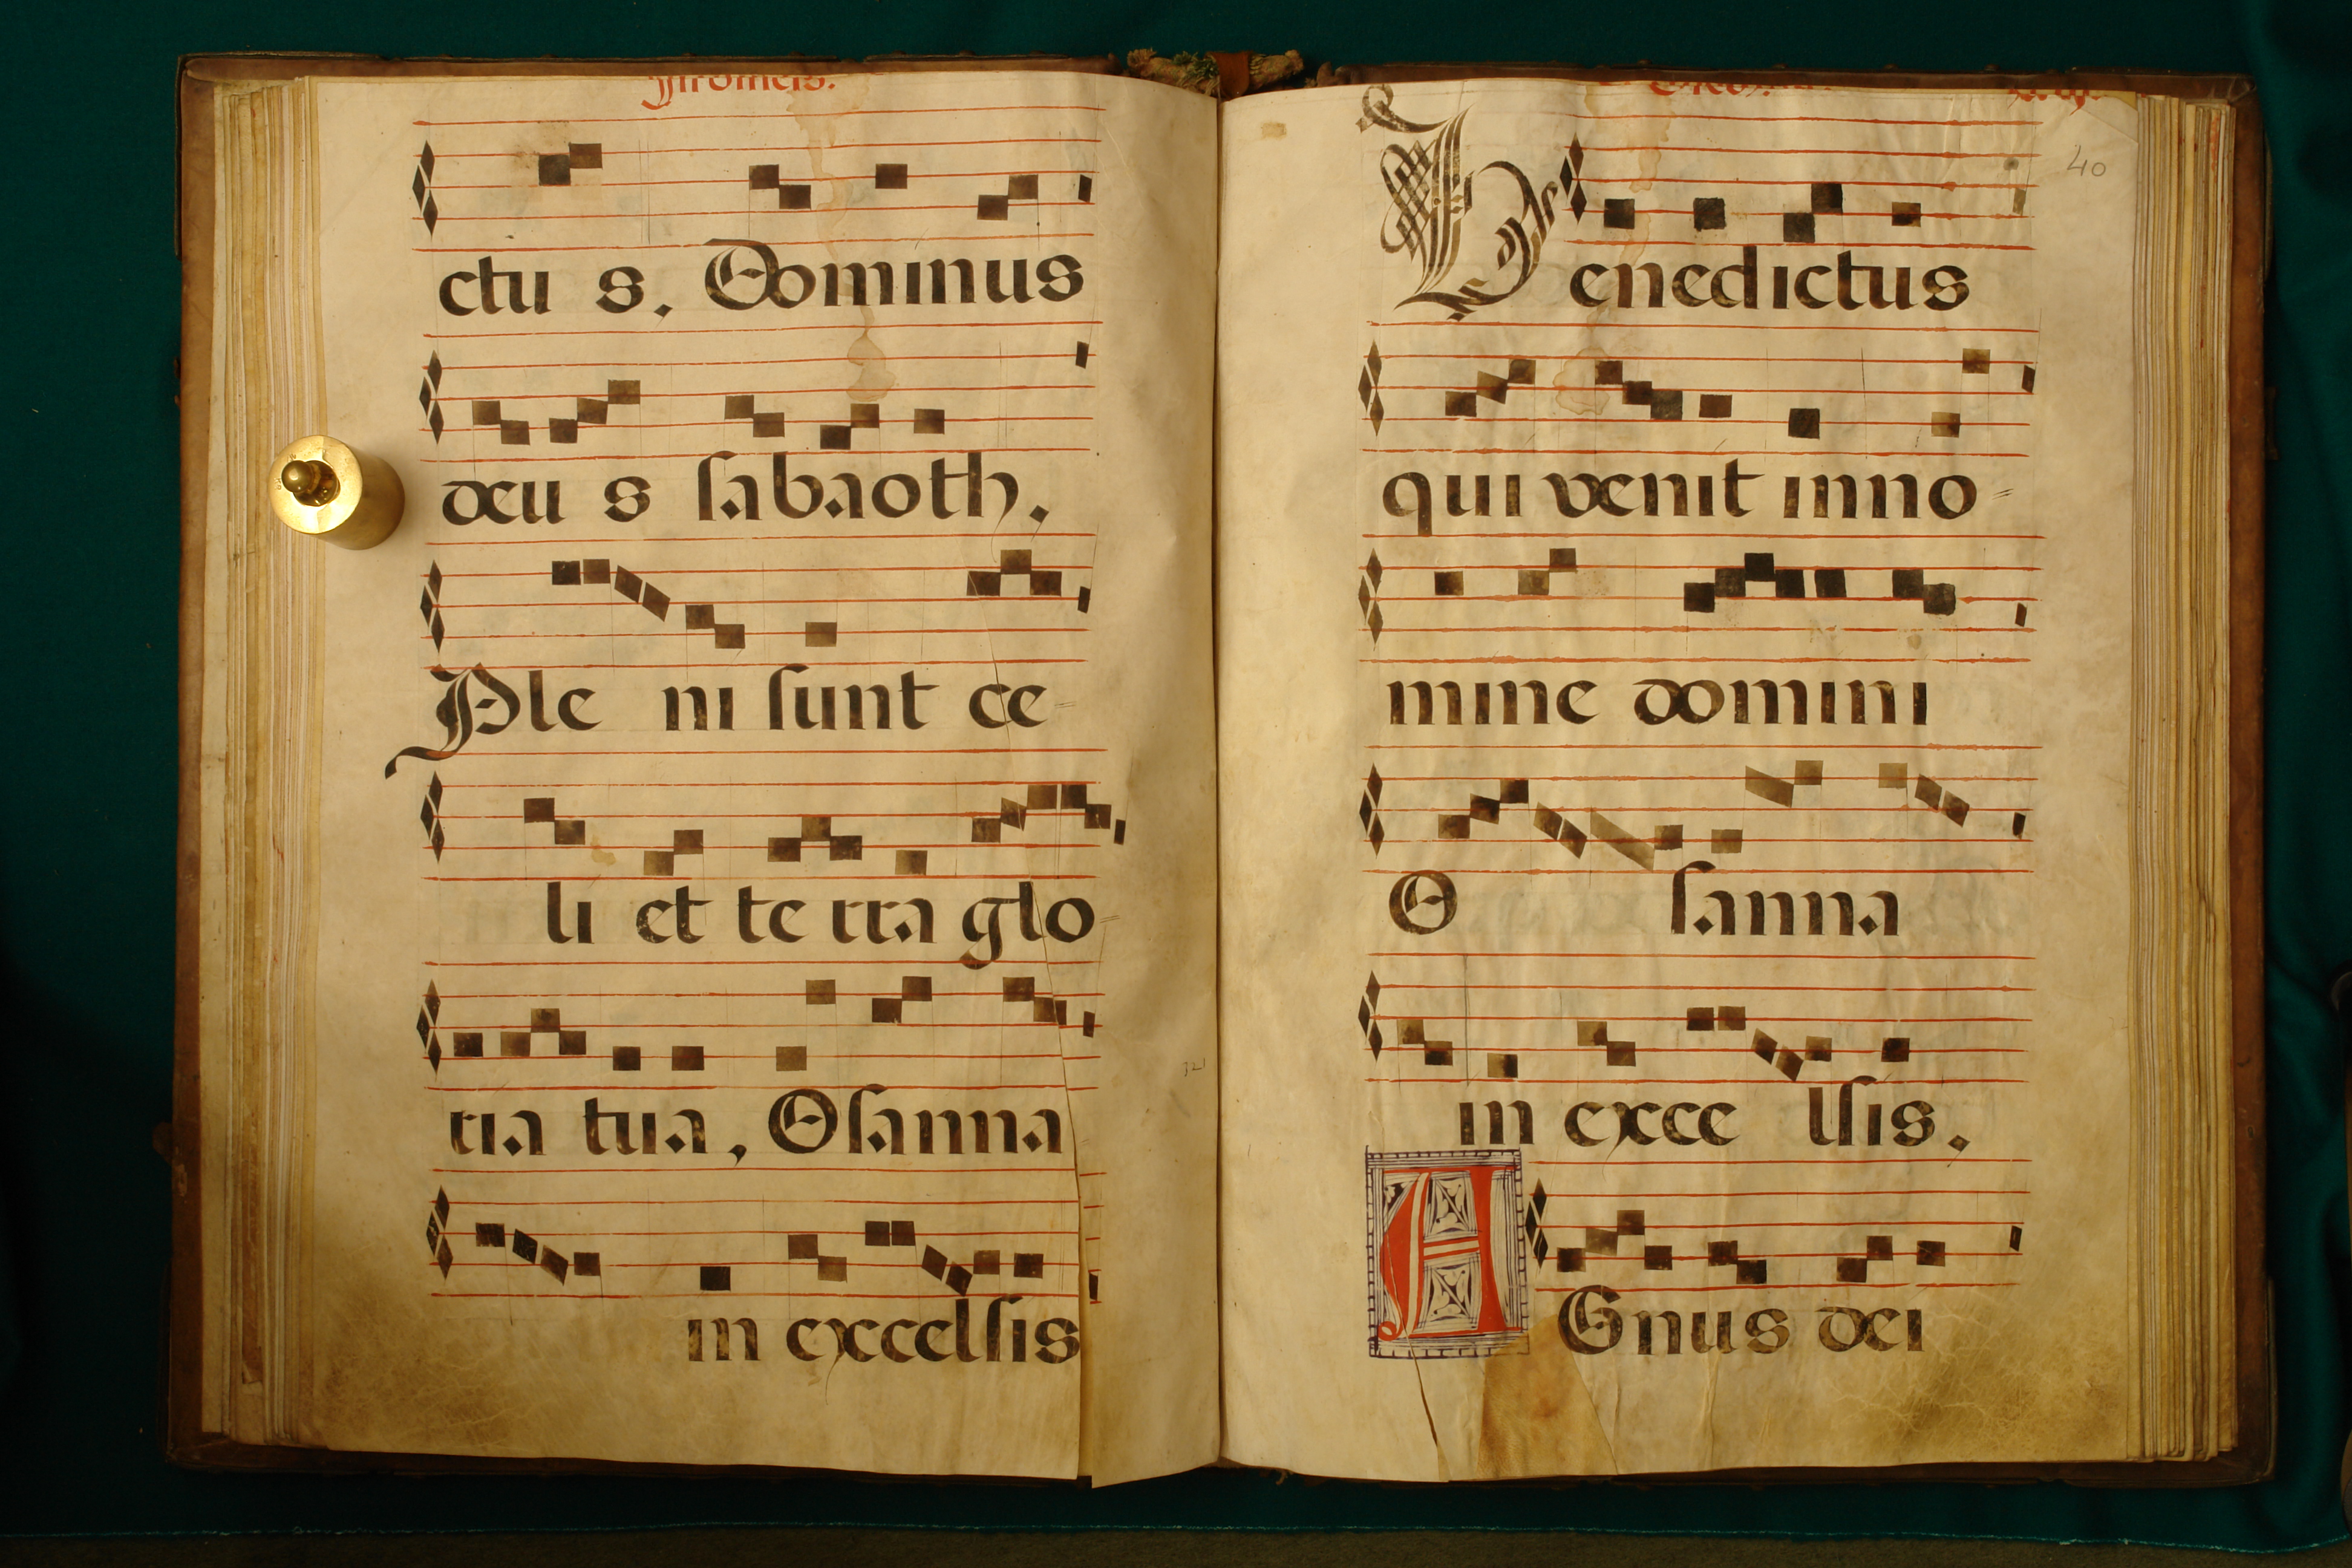 ctu s. Dominus
deu s sabaoth.
Ple ni sunt ce-
li et te rra glo-
ria tua, Osanna
in excelsis
40
Benedictus
qui venit inno-
mine domini
O sanna
in exce lsis.
AGnus dei